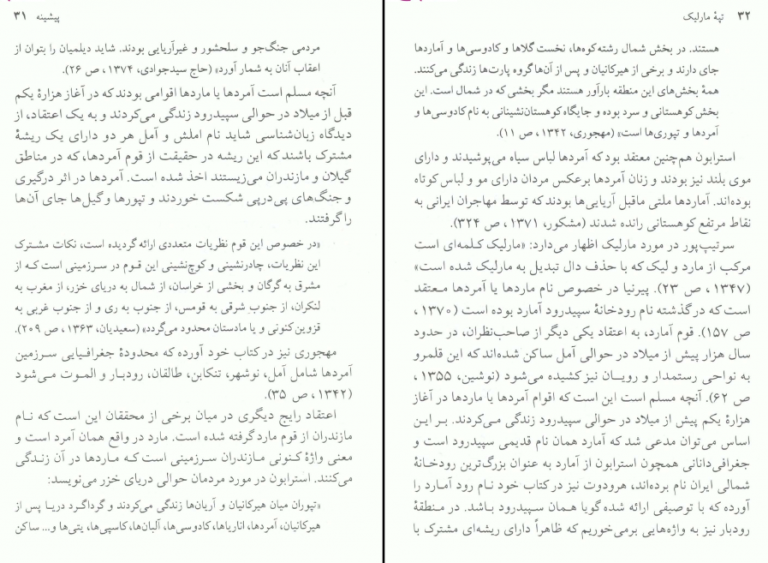 پیشینه ۳۱
مردمی جنگ‌جو و سلحشور و غیرآریایی بودند. شاید دیلمیان را بتوان از
اعقاب آنان به شمار آورد» (حاج سیدجوادی، ۱۳۷۴، ص ۲۶).
آنچه مسلم است آمردها یا ماردها اقوامی بودند که در آغاز هزارهٔ یکم
قبل از میلاد در حوالی سپیدرود زندگی می‌کردند و به یک اعتقاد، از
دیدگاه زبان‌شناسی شاید نام املش و آمل هر دو دارای یک ریشهٔ
مشترک باشند که این ریشه در حقیقت از قوم آمردها، که در مناطق
گیلان و مازندران می‌زیستند اخذ شده است. آمردها در اثر درگیری
و جنگ‌های پی‌درپی شکست خوردند و تپورها و گیل‌ها جای آن‌ها
را گرفتند.
«در خصوص این قوم نظریات متعددی ارائه گردیده است، نکات مشترک
این نظریات، چادرنشینی و کوچ‌نشینی این قوم در سرزمینی است که از
مشرق به گرگان و بخشی از خراسان، از شمال به دریای خزر، از مغرب به
لنکران، از جنوب شرقی به قومس، از جنوب به ری و از جنوب غربی به
قزوین کنونی و یا مادستان محدود می‌گردد» (سعیدیان، ۱۳۶۳، ص ۲۰۹).
مهجوری نیز در کتاب خود آورده که محدودهٔ جغرافیایی سرزمین
آمردها شامل آمل، نوشهر، تنکابن، طالقان، رودبار و الموت می‌شود
(۱۳۴۲، ص ۳۵).
اعتقاد رایج دیگری در میان برخی از محققان این است که نام
مازندران از قوم مارد گرفته شده است. مارد در واقع همان آمرد است و
معنی واژهٔ کنونی مازندران سرزمینی است که ماردها در آن زندگی
می‌کنند. استرابون در مورد مردمان حوالی دریای خزر می‌نویسد:
«تپوران میان هیرکانیان و آریان‌ها زندگی می‌کردند و گرداگرد دریا پس از
هیرکانیان، آمردها، اناریاها، کادوسی‌ها، آلبان‌ها، کاسپی‌ها، یتی‌ها و... ساکن
۳۲ تپهٔ مارلیک
هستند. در بخش شمال رشته‌کوه‌ها، نخست گلاها و کادوسی‌ها و آماردها
جای دارند و برخی از هیرکانیان و پس از آن‌ها گروه پارت‌ها زندگی می‌کنند.
همهٔ بخش‌های این منطقه بارآور هستند مگر بخشی که در شمال است. این
بخش کوهستانی و سرد بوده و جایگاه کوهستان‌نشینانی به نام کادوسی‌ها و
آمردها و تپوری‌ها است» (مهجوری، ۱۳۴۲، ص ۱۱).
استرابون هم‌چنین معتقد بود که آمردها لباس سیاه می‌پوشیدند و دارای
موی بلند نیز بودند و زنان آمردها برعکس مردان دارای مو و لباس کوتاه
بوده‌اند. آماردها ملتی ماقبل آریایی‌ها بودند که توسط مهاجران ایرانی به
نقاط مرتفع کوهستانی رانده شدند (مشکور، ۱۳۷۱، ص ۳۲۴).
سرتیپ‌پور در مورد مارلیک اظهار می‌دارد: «مارلیک کلمه‌ای است
مرکب از مارد و لیک که با حذف دال تبدیل به مارلیک شده است»
(۱۳۴۷، ص ۲۳). پیرنیا در خصوص نام ماردها یا آمردها معتقد
است که در گذشته نام رودخانهٔ سپیدرود آمارد بوده است (۱۳۷۰،
ص ۱۵۷). قوم آمارد، به اعتقاد یکی دیگر از صاحب‌نظران، در حدود
سال هزار پیش از میلاد در حوالی آمل ساکن شده‌اند که این قلمرو
به نواحی رستمدار و رویان نیز کشیده می‌شود (نوشین، ۱۳۵۵،
ص ۶۲). آنچه مسلم است این است که اقوام آمردها یا ماردها در آغاز
هزارهٔ یکم پیش از میلاد در حوالی سپیدرود زندگی می‌کردند. بر این
اساس می‌توان مدعی شد که آمارد همان نام قدیمی سپیدرود است و
جغرافی‌دانانی همچون استرابون از آمارد به عنوان بزرگ‌ترین رودخانهٔ
شمالی ایران نام برده‌اند، هرودوت نیز در کتاب خود نام رود آمارد را
آورده که با توصیفی ارائه شده گویا همان سپیدرود باشد. در منطقهٔ
رودبار نیز به واژه‌هایی برمی‌خوریم که ظاهراً دارای ریشه‌ای مشترک با